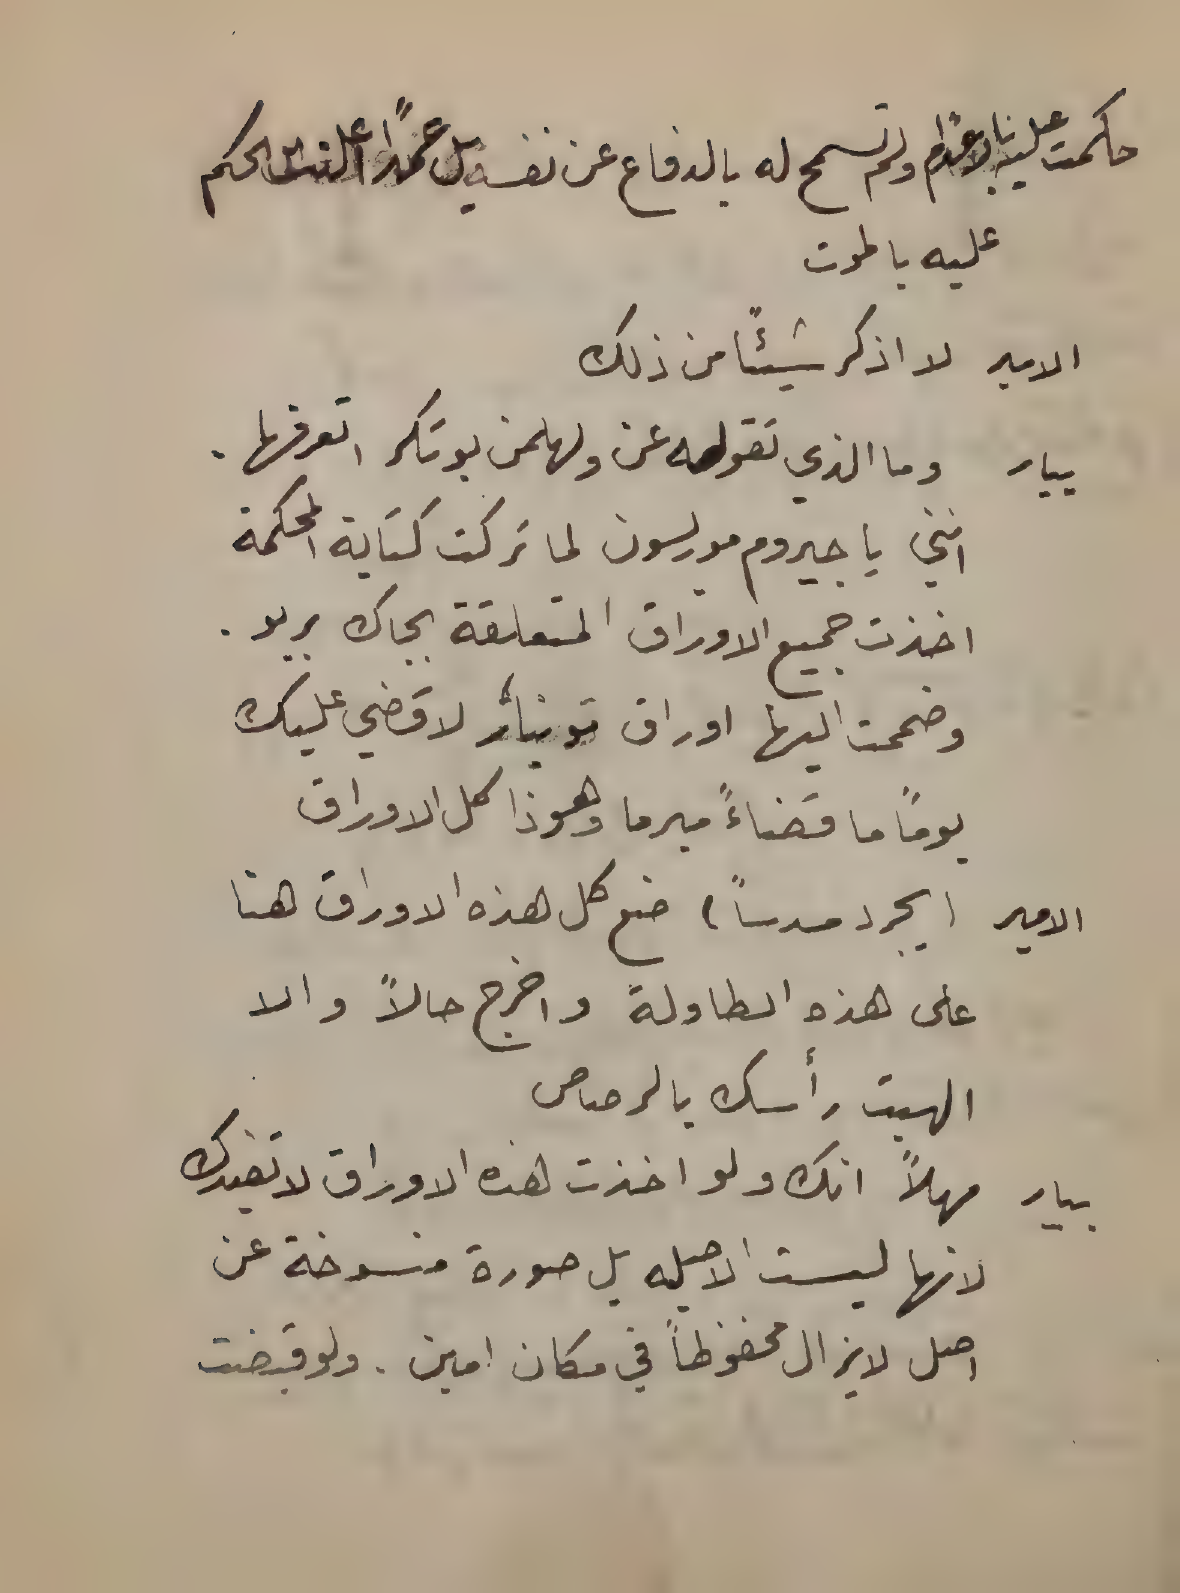 حاكمت عليه ولم تسمح له بالدفاع عن نفسه بل عمدًا الحكم
عليه بالموت
الامير لا اذكر شيئًا من ذلك
بيار وما الذي تقوله عن ولهلمن بوتكر اتعرفها .
انني يا جيروم مورلسون لما تركت كتابة المحكمة
اخذت جميع الاوراق المتعلقة بجاك بريو .
وضممت اليها اوراق لاقضي عليك
يومًا ما قضاءً مبرما وهوذا كل الاوراق
الامير ( يجرد مسدساً ) ضع كل هذه الاوراق هنا
على هذه الطاولة واخرج حالاً والا
الهبت رأسك بالرصاص
بيار مهلاً انك ولو اخذت هذه الاوراق لا تفيدك
لانها ليست الاصيله بل صورة منسوخة عن
اصل لا يزال محفوظاً في مكان امين . ولو قبضت